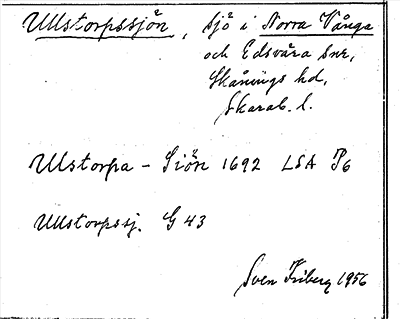 Ullstorpssjön, sjö i Norra Vånga
och Edsvära snr,
Skånings hd,
Skarab. l.
Ulstorpa - Siön 1692 LSA P6
Ullstorpssj. G 43
Sven Friberg 1956